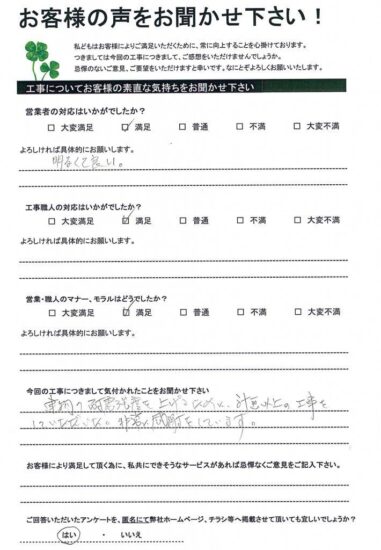 お客様の声をお聞かせ下さい！
私どもはお客様によりご満足いただくために、常に向上することを心掛けております。
つきましては今回の工事につきまして、ご感想をいただけませんでしょうか。
忌憚のないご意見、ご要望をいただけますと幸いです。なにとぞよろしくお願いいたします。
工事についてお客様の素直な気持ちをお聞かせ下さい
営業者の対応はいかがでしたか？
□ 大変満足 ☑ 満足 □ 普通 □ 不満 □ 大変不満
よろしければ具体的にお願いします。
明るくて良い。
工事職人の対応はいかがでしたか？
□ 大変満足 ☑ 満足 □ 普通 □ 不満 □ 大変不満
よろしければ具体的にお願いします。
営業・職人のマナー、モラルはどうでしたか？
□ 大変満足 ☑ 満足 □ 普通 □ 不満 □ 大変不満
よろしければ具体的にお願いします。
今回の工事につきまして気付かれたことをお聞かせ下さい
建物の耐震強度を上げるために、計画以上の工事を
していただいた。非常に感謝をしています。
お客様により満足して頂く為に、私共にできそうなサービスがあれば忌憚なくご意見をご記入下さい。
ご回答いただいたアンケートを、匿名にて弊社ホームページ、チラシ等へ掲載させて頂いても宜しいでしょうか？
はい ・ いいえ